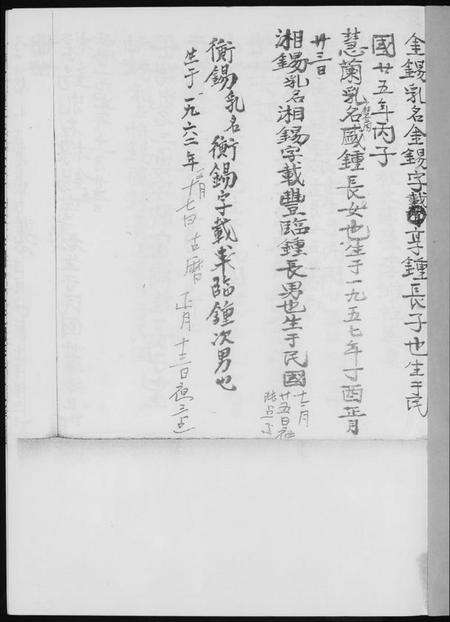 金錫乳名金錫字載享鍾長子也生于民
國廿五年丙子
慧蘭乳名咸鍾長女也生于一九五七年丁酉正月
廿三日
湘錫乳名湘錫字載豐臨鍾長男也生于民國
十二月
廿五日
衡錫乳名衡錫字載車臨鍾次男也
生于一九六二年二月十七日古曆正月十三日夜三点